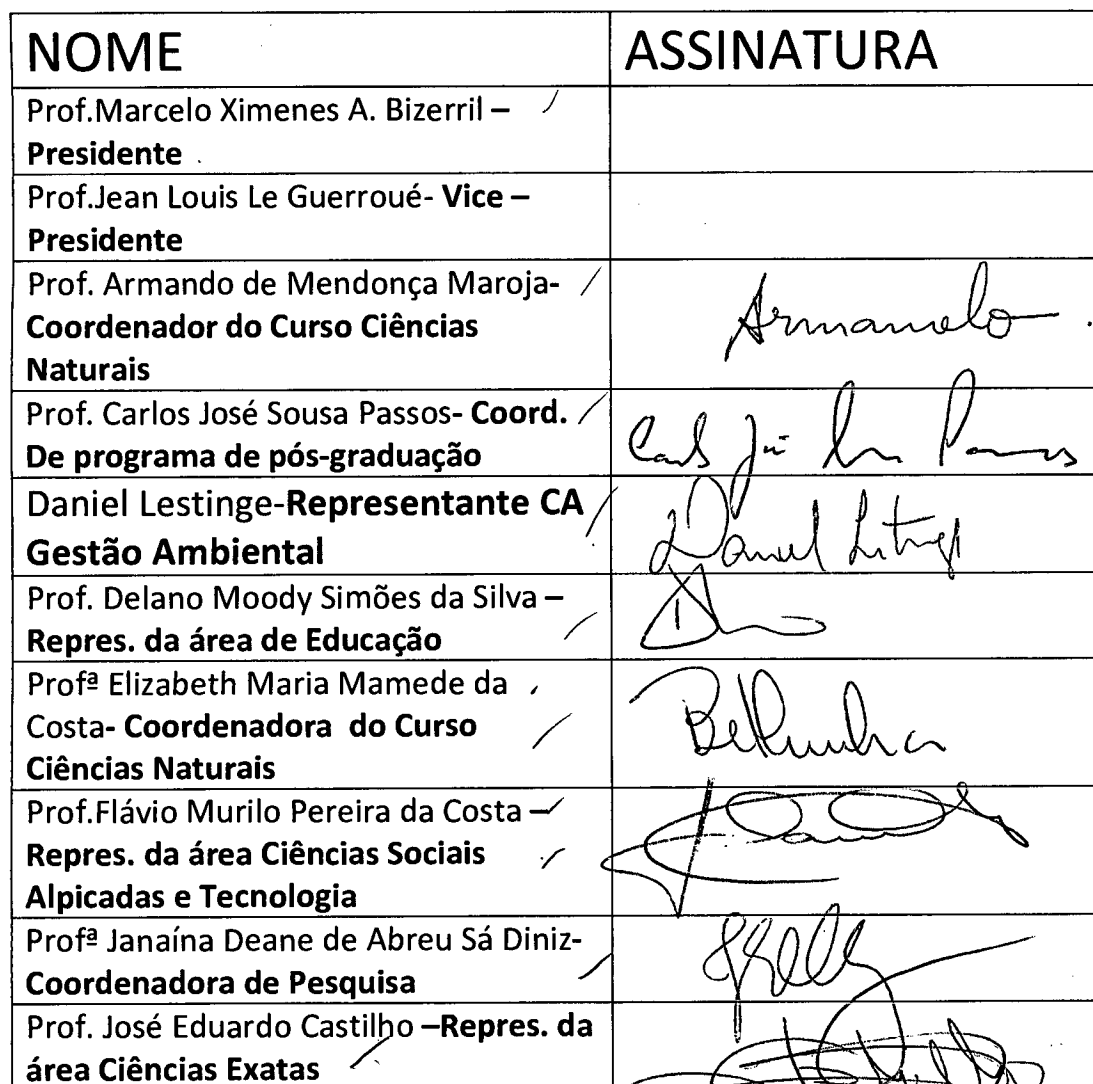 NOME ASSINATURA
Prof.Marcelo Ximenes A. Bizerril –
Presidente
Prof.Jean Louis Le Guerroué- Vice –
Presidente
Prof. Armando de Mendonça Maroja-
Coordenador do Curso Ciências
Naturais
Armando
Prof. Carlos José Sousa Passos- Coord.
De programa de pós-graduação
Daniel Lestinge-Representante CA
Gestão Ambiental
Daniel
Prof. Delano Moody Simões da Silva –
Repres. da área de Educação
Profª Elizabeth Maria Mamede da
Costa- Coordenadora do Curso
Ciências Naturais
Prof.Flávio Murilo Pereira da Costa –
Repres. da área Ciências Sociais
Alpicadas e Tecnologia
Profª Janaína Deane de Abreu Sá Diniz-
Coordenadora de Pesquisa
Prof. José Eduardo Castilho –Repres. da
área Ciências Exatas